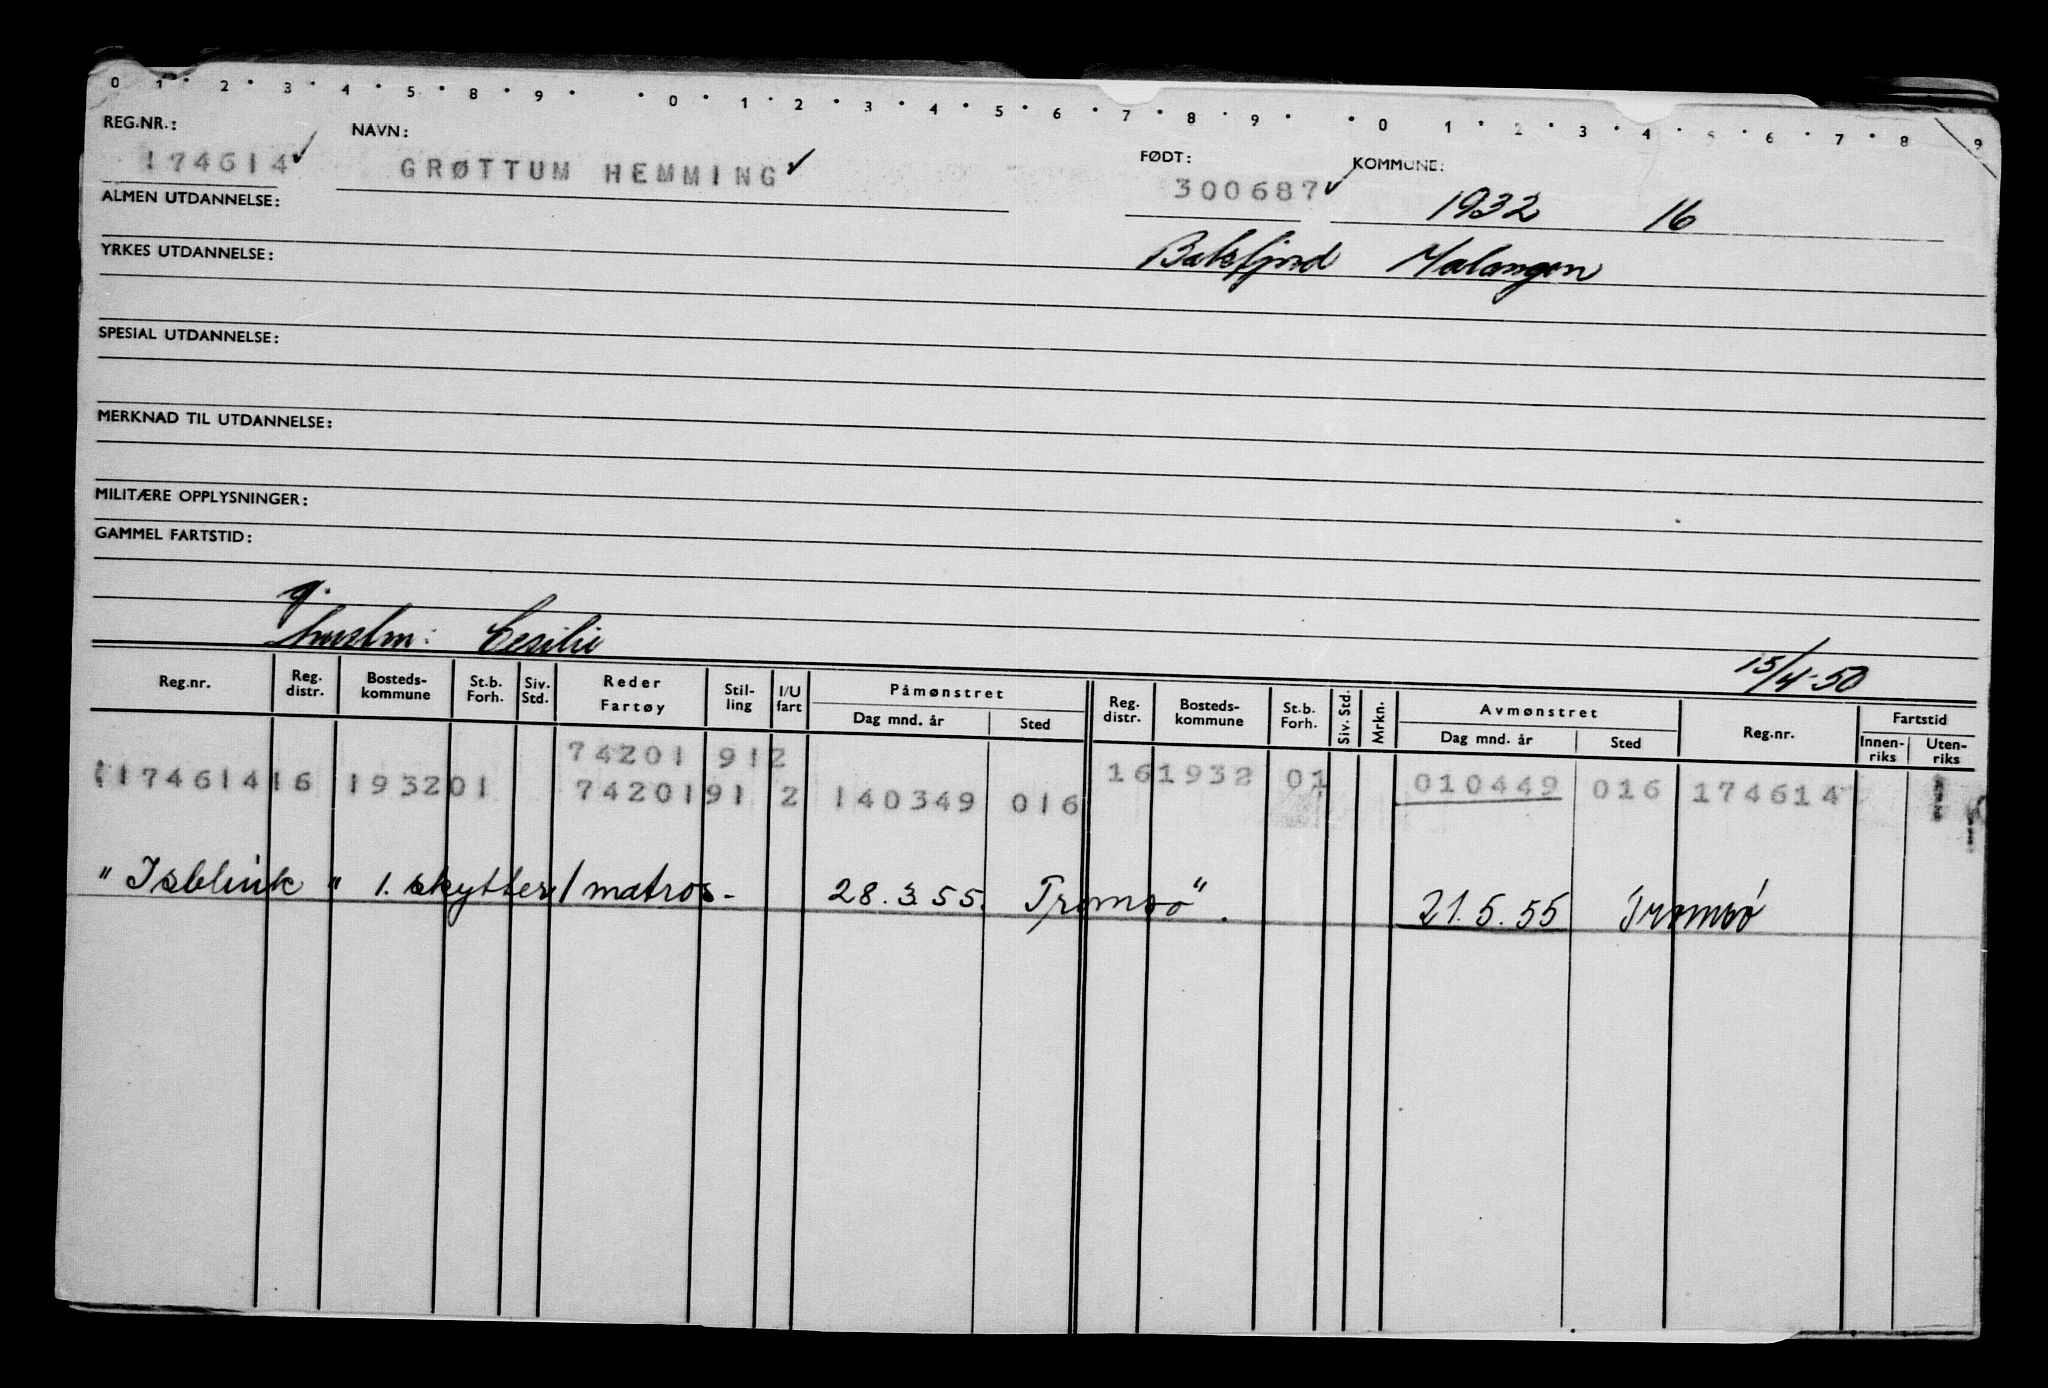 0 1 • 2 • 3 • 4 • 5 • 8 • 9 • • 0 • 1 • 2 • 3 • 4 • 5 • 6 • 7 • 8 • 9 • • 0 1 • 2 • 3 • 4 • 5 • 6 • 7 • 8 9
REG.NR.: NAVN: FØDT: KOMMUNE:
174614 ✓ GRØTTUM HEMMING ✓ 300687 ✓ 1932 16
ALMEN UTDANNELSE:
Balsfjord Malangen
YRKES UTDANNELSE:
SPESIAL UTDANNELSE:
MERKNAD TIL UTDANNELSE:
MILITÆRE OPPLYSNINGER:
GAMMEL FARTSTID:
g.
hustru: Cesilie 15/4-50
Reg.nr. Reg. distr. Bosteds- kommune St.b. Forh. Siv. Std. Reder Fartøy Stil- ling I/U fart Påmønstret Dag mnd. år Sted Reg. distr. Bosteds- kommune St.b. Forh. Siv. Std. Mrkn. Avmønstret Dag mnd. år Sted Reg.nr. Fartstid Innen- riks Uten- riks
74201 912
174614 16 1932 01 74201 91 2 140349 016 16 1932 01 010449 016 174614
"Isblink" 1. skytter/matros- 28.3.55. Tromsø". 21.5.55 Tromsø